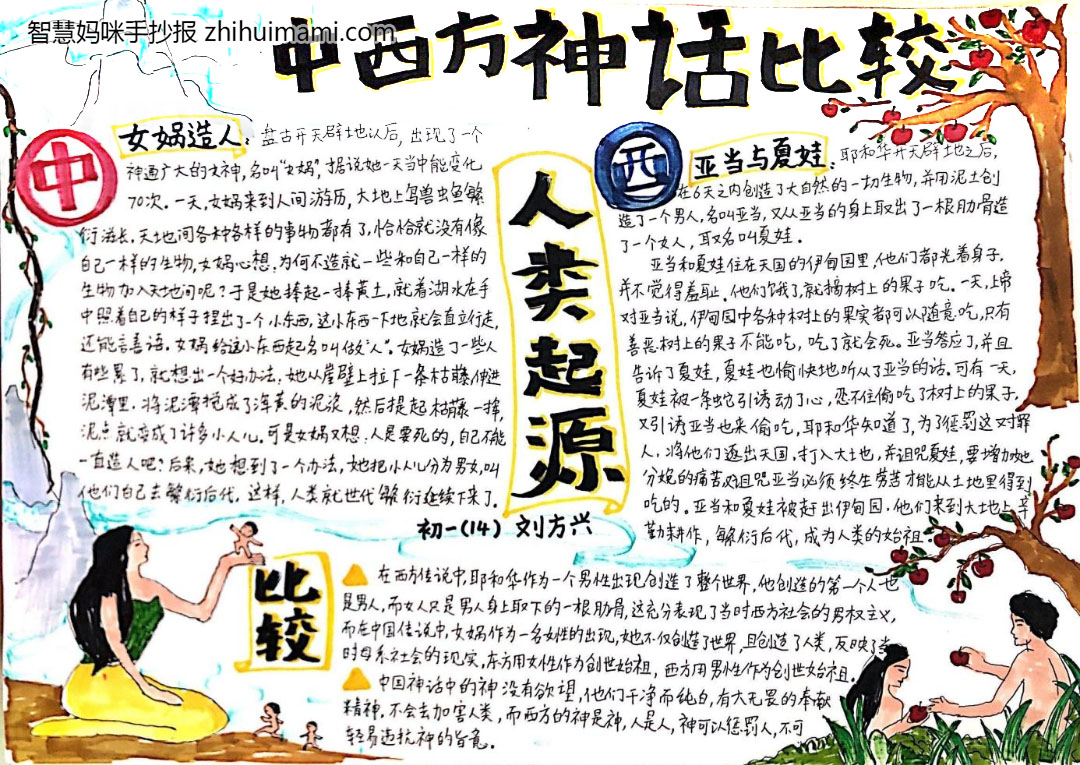 智慧妈咪手抄报 zhihuimami.com
中西方神话比较
中
女娲造人：盘古开天辟地以后，出现了一个
神通广大的女神，名叫“女娲”，据说她一天当中能变化
70次。一天，女娲来到人间游历，大地上鸟兽虫鱼繁
衍滋长，天地间各种各样的事物都有了，恰恰就没有像
自己一样的生物，女娲心想：为何不造就一些和自己一样的
生物加入天地间呢？于是她捧起一捧黄土，就着湖水在手
中照着自己的样子捏出了一个小东西，这小东西一下地就会直立行走，
还能言善语。女娲给这小东西起名叫做“人”。女娲造了一些人
有些累了，就想出一个好办法：她从崖壁上拉下一条枯藤伸进
泥潭里，将泥潭搅成了浑黄的泥浆，然后提起枯藤一挥，
泥点就变成了许多小人儿。可是女娲又想：人是要死的，自己不能
一直造人吧？后来，她想到了一个办法，她把小人儿分为男女，叫
他们自己去繁衍后代。这样，人类就世代繁衍延续下来了。
人类起源
初一（14）刘方兴
西
亚当与夏娃：耶和华开天辟地之后，
在6天之内创造了大自然的一切生物，并用泥土创
造了一个男人，名叫亚当，又从亚当的身上取出了一根肋骨造
了一个女人，取名叫夏娃。
亚当和夏娃住在天国的伊甸园里，他们都光着身子，
并不觉得羞耻。他们饿了就摘树上的果子吃。一天，上帝
对亚当说，伊甸园中各种树上的果实都可以随意吃，只有
善恶树上的果子不能吃，吃了就会死。亚当答应了，并且
告诉了夏娃，夏娃也愉快地听从了亚当的话。可有一天，
夏娃被一条蛇引诱动了心，忍不住偷吃了树上的果子，
又引诱亚当也来偷吃，耶和华知道了，为了惩罚这对罪
人，将他们逐出天国，打入大地，并诅咒夏娃，要增加她
分娩的痛苦，又诅咒亚当必须终生劳苦才能从土地里得到
吃的。亚当和夏娃被赶出伊甸园，他们来到大地上辛
勤耕作，繁衍后代，成为人类的始祖。
比较
在西方传说中，耶和华作为一个男性出现创造了整个世界，他创造的第一个人也
是男人，而女人只是男人身上取下的一根肋骨，这充分表现了当时西方社会的男权主义，
而在中国传说中，女娲作为一名女性的出现，她不仅创造了世界，且创造了人类，反映了当
时母系社会的现实，东方用女性作为创世始祖，西方用男性作为创世始祖。
中国神话中的神没有欲望，他们干净而纯白，有大无畏的奉献
精神，不会去加害人类，而西方的神是神，人是人，神可以惩罚人，不可
轻易违抗神的旨意。